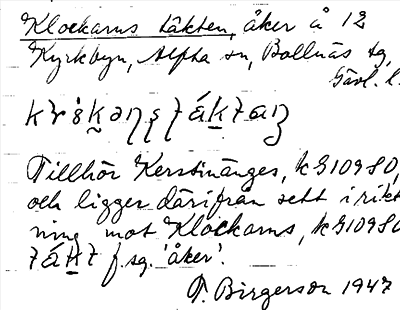 Klockarns täkten, åker å 12
Kyrkbyn, Alfta sn, Bollnäs tg,
Gävl. l.
Tillhör Kerstinänges, k
och ligger därifrån sett i rikt
ning mot Klockarns, k
f. sg. 'åker'.
T. Birgerson 1947